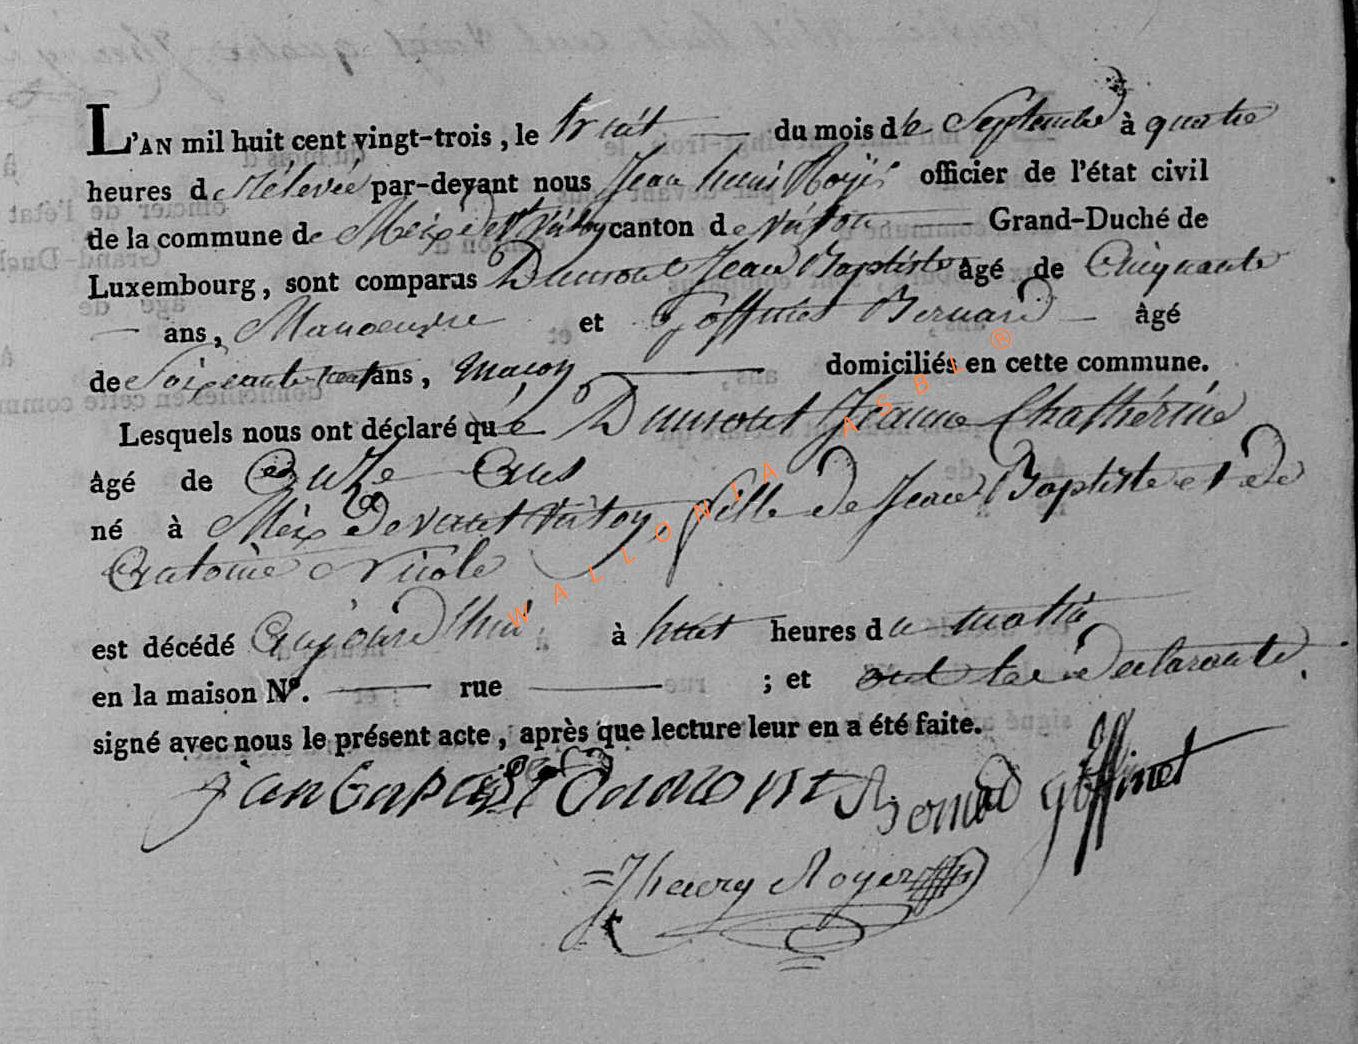 L'AN mil huit cent vingt-trois, le huit du mois de Septembre à quatre
heures de Rélevée par-devant nous Jean henri Royér officier de l'état civil
de la commune de Meix devt Virton canton de virton Grand-Duché de
Luxembourg, sont comparus Dumont Jean Baptiste âgé de Cinquante
ans, Manoeuvre et Goffinet Bernard âgé
de Soixante ans, macon domiciliés en cette commune.
Lesquels nous ont déclaré que Dumont Jeanne Chatherine
âgé de Onze Ans
né à Meix Devant Virton, fille de Jean Baptiste et de
Antoine Nicole
est décédé Aujourd'hui à huit heures du matin
en la maison No. rue ; et ont les Declarants
signé avec nous le présent acte, après que lecture leur en a été faite.
Jan Bapist Dumont Bernad goffinet
Jhenry Royer
WALLONIA ASBL ®